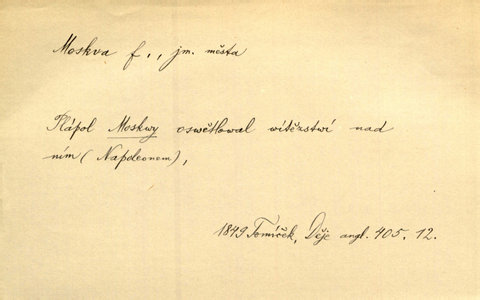 Moskva f., jm. města
Plápol Moskwy oswětlowal witězstwí nad
ním (Napoleonem),
1849 Tomíček, Děje angl. 405, 12.